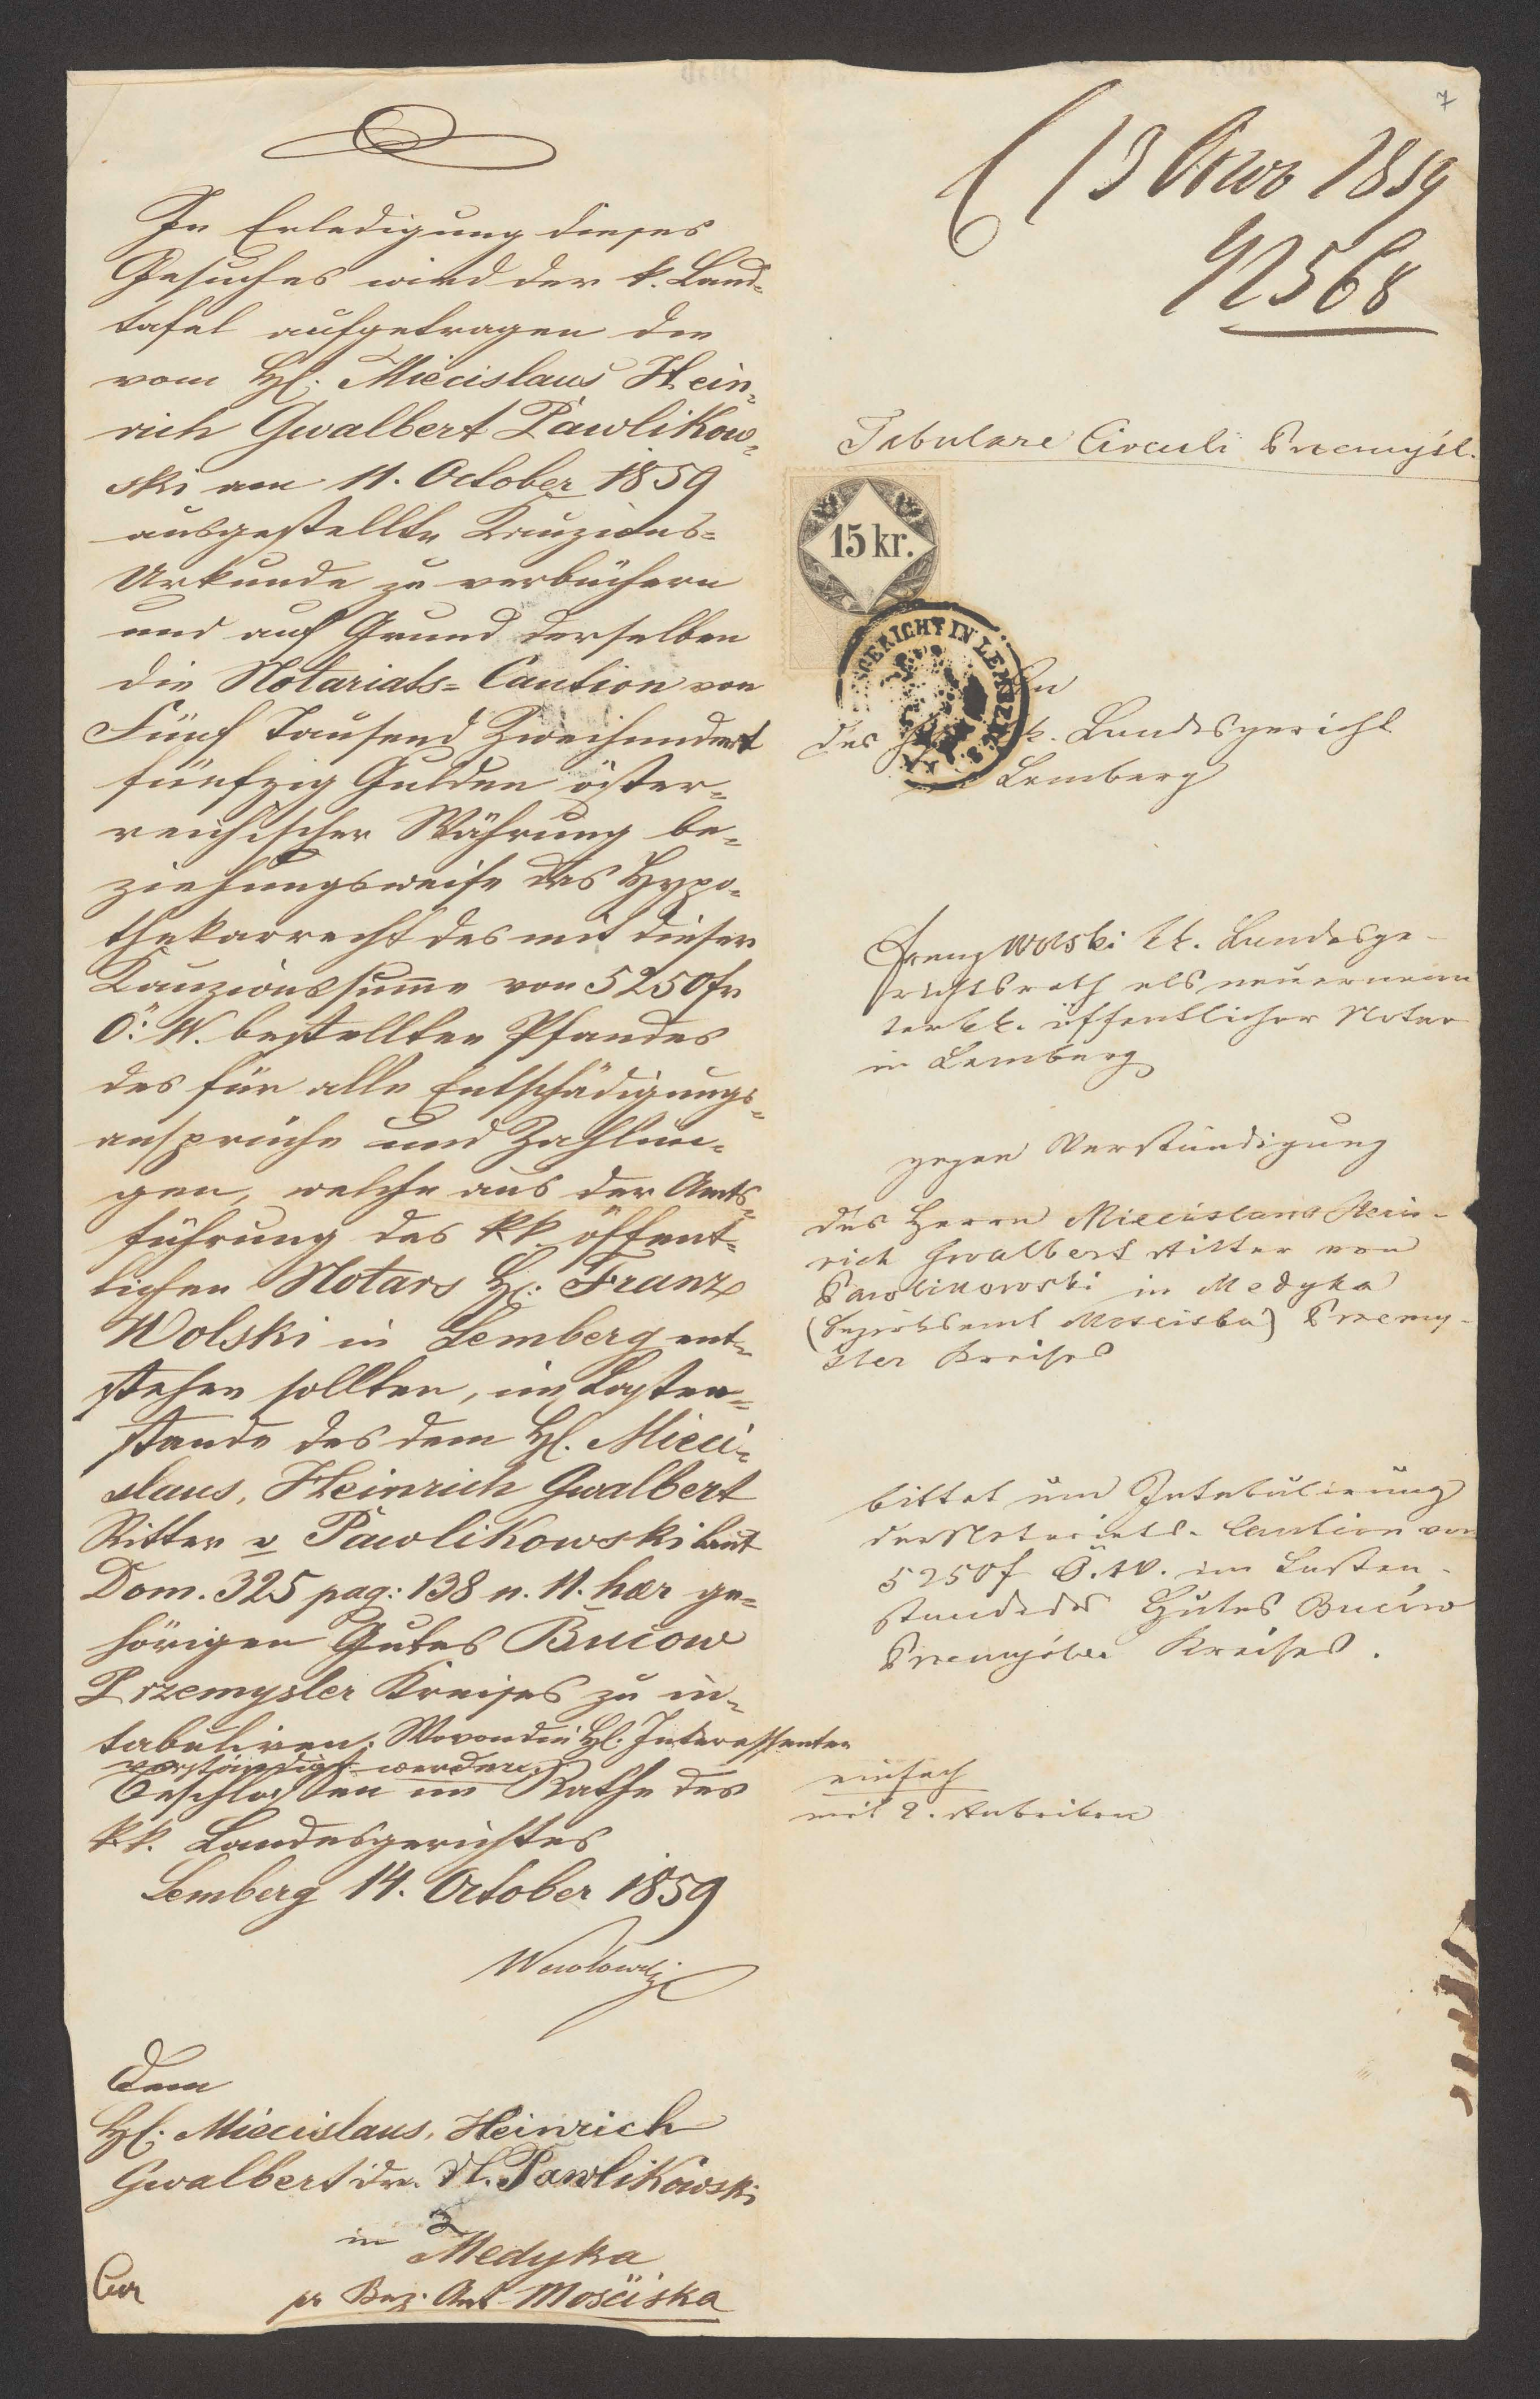 In Erledigung dieses
Gesuches wird der k. Land-
tafel aufgetragen die
vom H. Miecislaus Hein-
rich Gwalbert Pawlikow-
ski am 11. October 1859
ausgestellte Kauzions-
Urkunde zu verbüchern
und auf Grund derselben
die Notariats-Caution von
Fünf Tausend Zweihundert
fünfzig Gulden öster-
reichischer Währung be-
ziehungsweise das Hypo-
thekarrecht des mit dieser
Kauzionssumme von 5250 fr
Ö: W. bestellten Pfandes
des für alle Entschädigungs-
ansprüche und Zahlun-
gen, welche aus der Amts-
führung des kk öffent-
lichen Notars H: Franz
Wolski in Lemberg ent-
stehen sollten, im Lasten-
stande des dem H. Mieci-
slaus, Heinrich Gwalbert
Ritter v Pawlikowski laut
Dom. 325 pag: 138 n. 11. haer ge-
hörigen Gutes Bucow
Przemysler Kreises zu in-
tabuliren. Wovon die H. Interessenten
verständigt werden.
Beschlossen im Rathe des
k.k. Landesgerichtes
Lemberg 14. October 1859
Dem
H: Miecislaus, Heinrich
Gwalbert dr. H. Pawlikowski
in Medyka
pr Bez. Amt Mościska
7
13 1859
42568
Tabulare Circuli Przemyśl.
15 kr.
GERICHT IN LEMBERG
An
das k. Landesgericht
Lemberg
Franz Wolski kk. Landesge-
richtsrath als neuernann
ter kk. öffentlicher Notar
in Lemberg
gegen Verständigung
des Herrn Miecislaus Hein-
rich Gwalbert Ritter von
Pawlikowski in Medyka
(Bezirksamt Mosciska) Przemy-
śler Kreises
bittet um Intabulierung
der Notariats-Caution von
5250 f Ö.W. im Lasten-
stande des Gutes Buców
Przemyśler Kreises.
einfach
mit 2. Rubriken